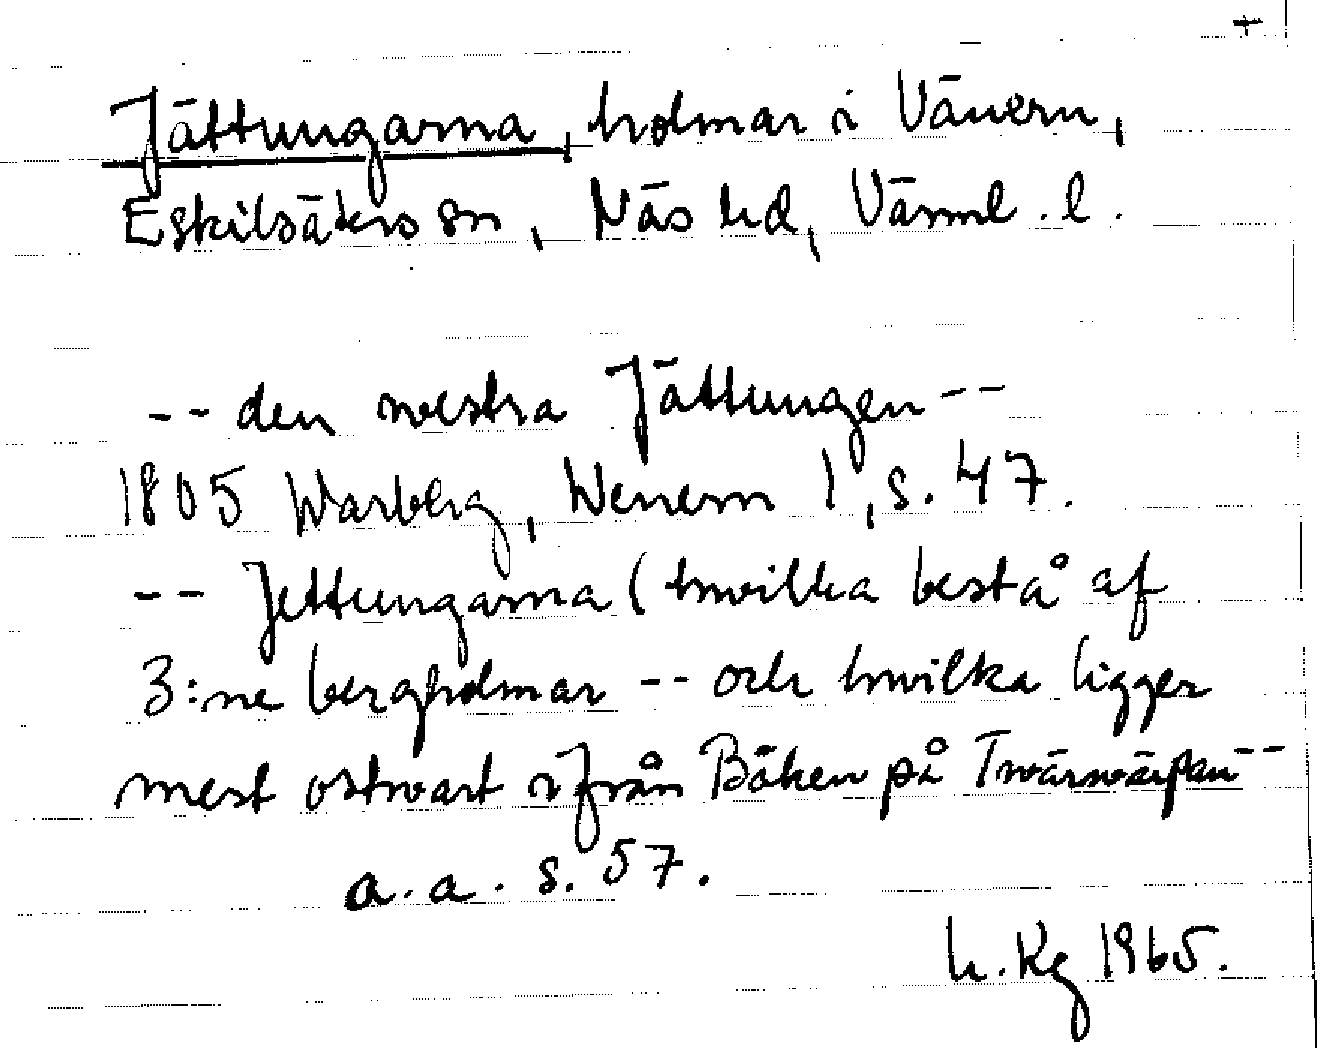 +
Jättungarna, holmar i Vänern,
Eskilsäters sn, Näs hd, Värml. l.
-- den westra Jättungen --
1805 Warberg, Wenern 1, s. 47.
-- Jettungarna (hwilka bestå af
3:ne bergholmar -- och hwilka ligger
mest ostwart ifrån Båken på Twärwärpan --
a.a. s. 57.
h. Kg 1965.